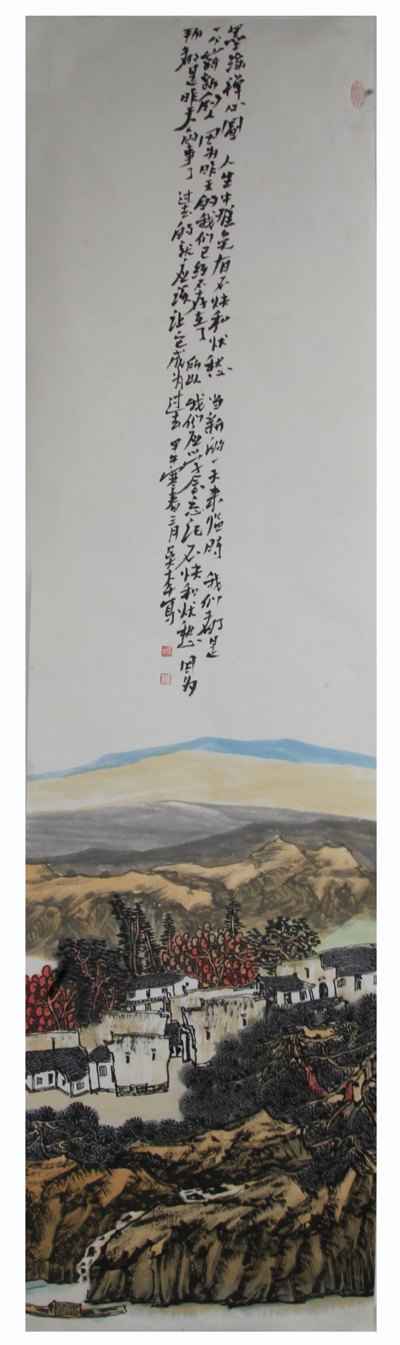 墨缘禅心圖 人生中难免有不快和忧愁 当新的一天来临时 我们都是
一个崭新的人 因为昨天的我们已经不存在了 所以我们应学会忘记不快和忧愁 因为
那都是昨天的事了 过去的就应该让它成为过去 甲午寒春二月